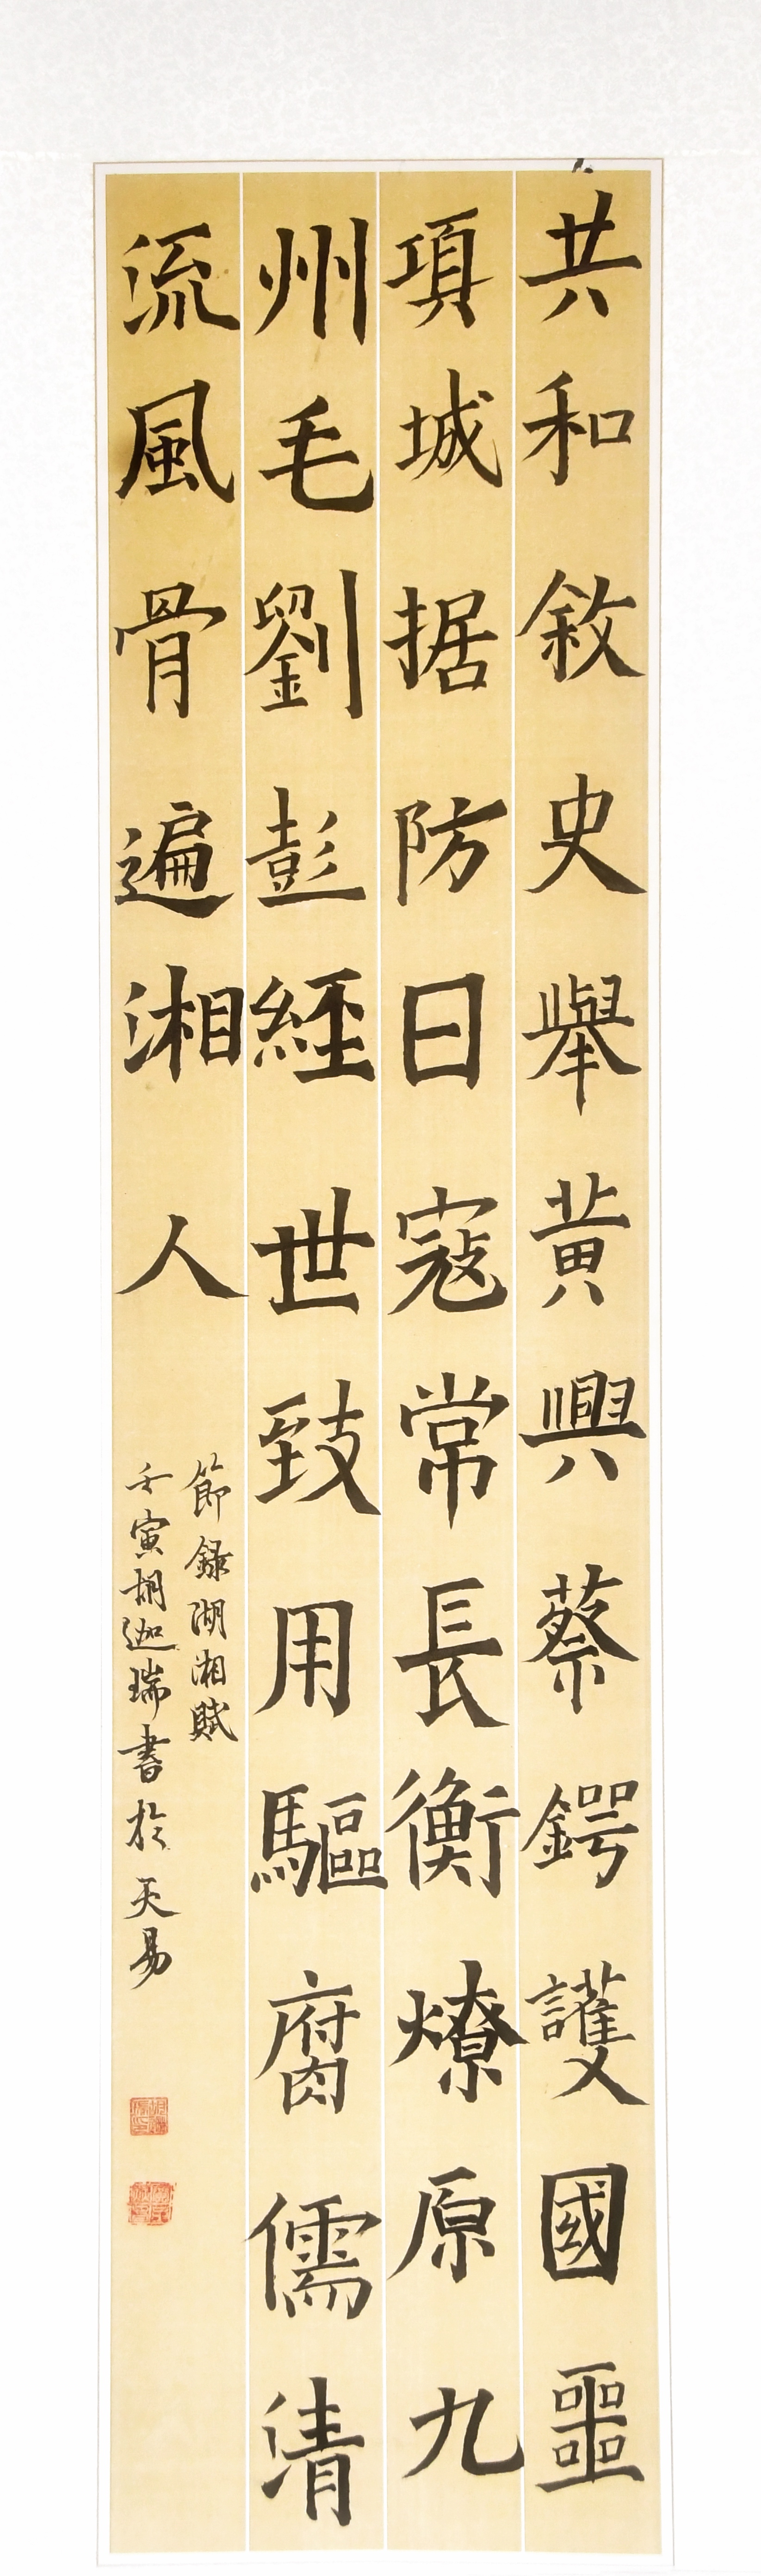 共和敘史舉黃興蔡鍔護國噩
項城据防日寇常長衡燎原九
州毛劉彭經世致用驅腐儒清
流風骨遍湘人
節錄湖湘賦
壬寅胡迦瑞書於天易